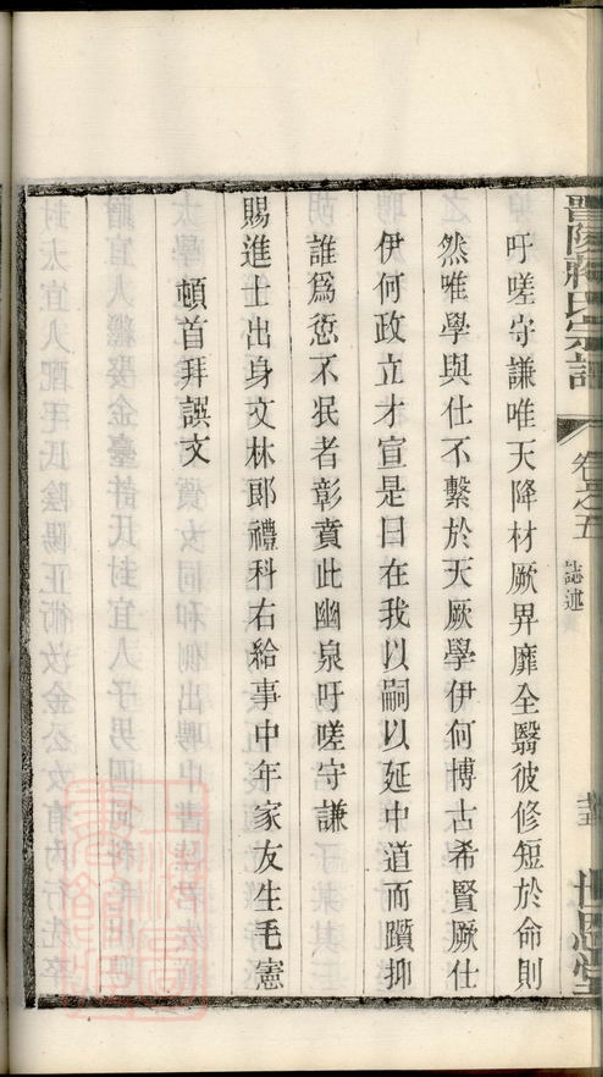 吁嗟守謙唯天降材厥畀靡全翳彼修短於命則
然唯學與仕不繫於天厥學伊何博古希賢厥仕
伊何政立才宣是曰在我以嗣以延中道而躓抑
誰為愆不泯者彰賁此幽泉吁嗟守謙
賜進士出身文林郎禮科右給事中年家友生毛憲
頓首拜譔文
晉陵蔣氏宗譜
卷之五
誌述
世恩堂